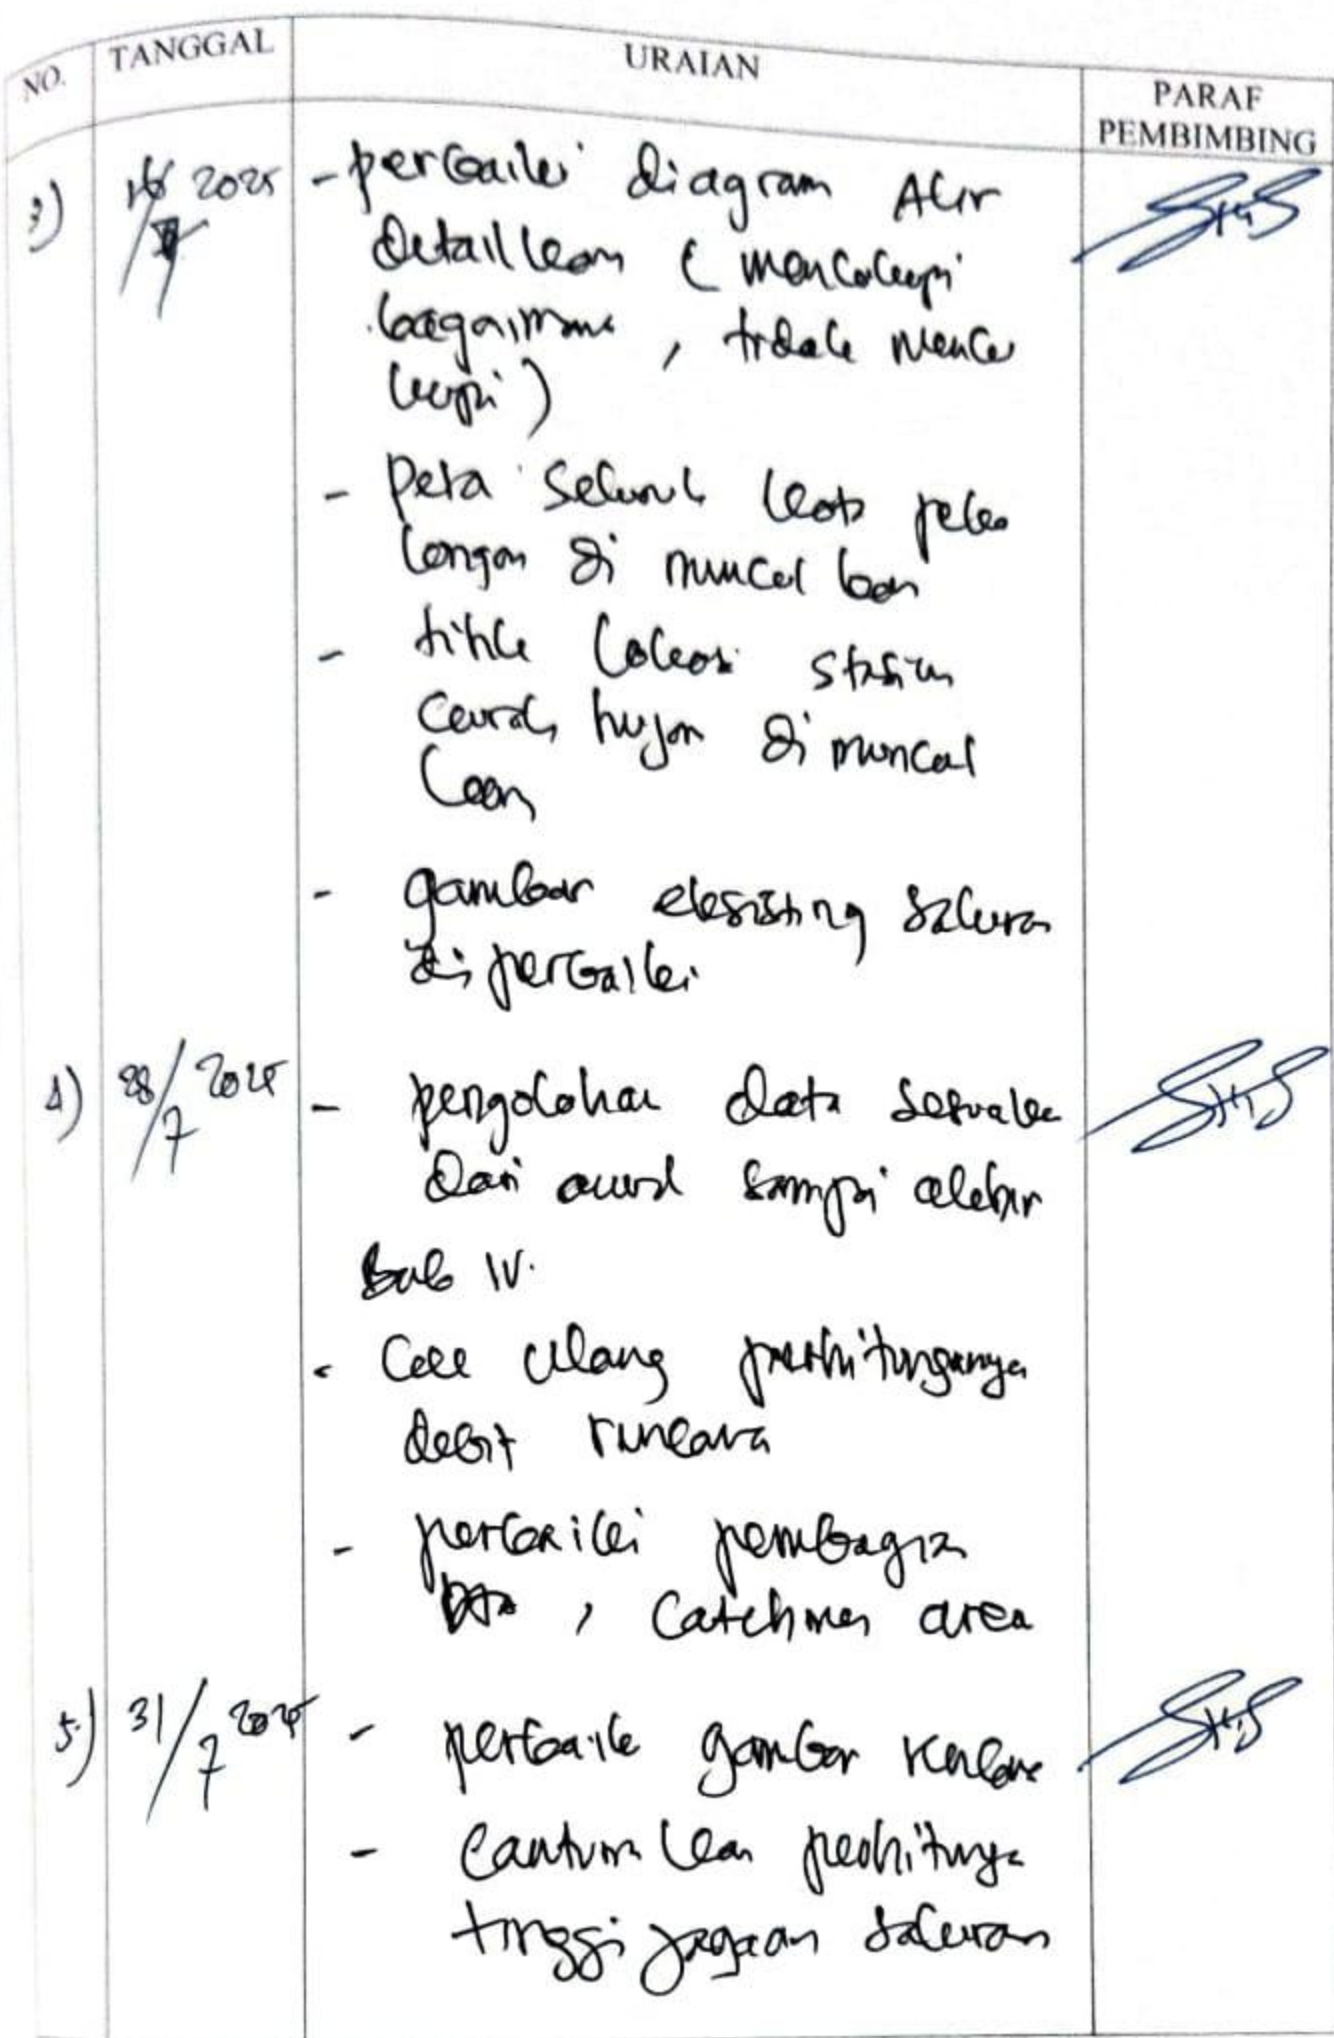 NO. TANGGAL URAIAN PARAF PEMBIMBING
3) 16/7 2025 - perbaiki diagram Alir
detailkan (mencukupi
bagaimana, tidak mencu
kupi)
- Peta seluruh kota peka
longan di muncul kan
- titik lokasi stasiun
curah hujan di muncul
kan
- gambar eksisting saluran
di perbaiki
4) 28/7 2025 - pengolahan data sesuaikan
dari awal sampai akhir
Bab IV.
- Cek ulang perhitungannya
debit rencana
- perbaiki pembagian
DTA, Catchmen area
5) 31/7 2025 - perbaiki gambar
- cantumkan perhitungan
tinggi jagaan saluran